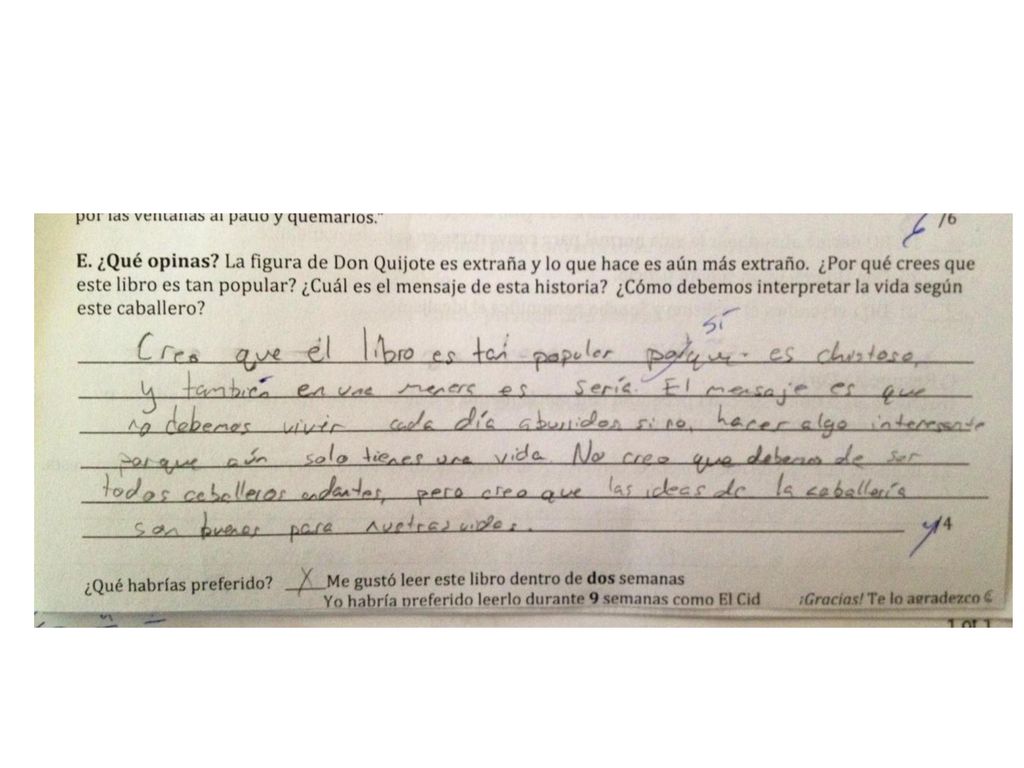 por las ventanas al patio y quemarlos."
6 /6
E. ¿Qué opinas? La figura de Don Quijote es extraña y lo que hace es aún más extraño. ¿Por qué crees que
este libro es tan popular? ¿Cuál es el mensaje de esta historia? ¿Cómo debemos interpretar la vida según
este caballero?
sí
Creo que él libro es tan popular porque es chistoso,
y también en una manera es sería. El mensaje es que
no debemos vivir cada día aburridos si no, hacer algo interesante
porque aún solo tienes una vida. No creo que debemos de ser
todos caballeros andantes, pero creo que las ideas de la caballería
son buenas para nuetras vidas.
4/4
¿Qué habrías preferido? X Me gustó leer este libro dentro de dos semanas
Yo habría preferido leerlo durante 9 semanas como El Cid ¡Gracias! Te lo agradezco
1 of 1